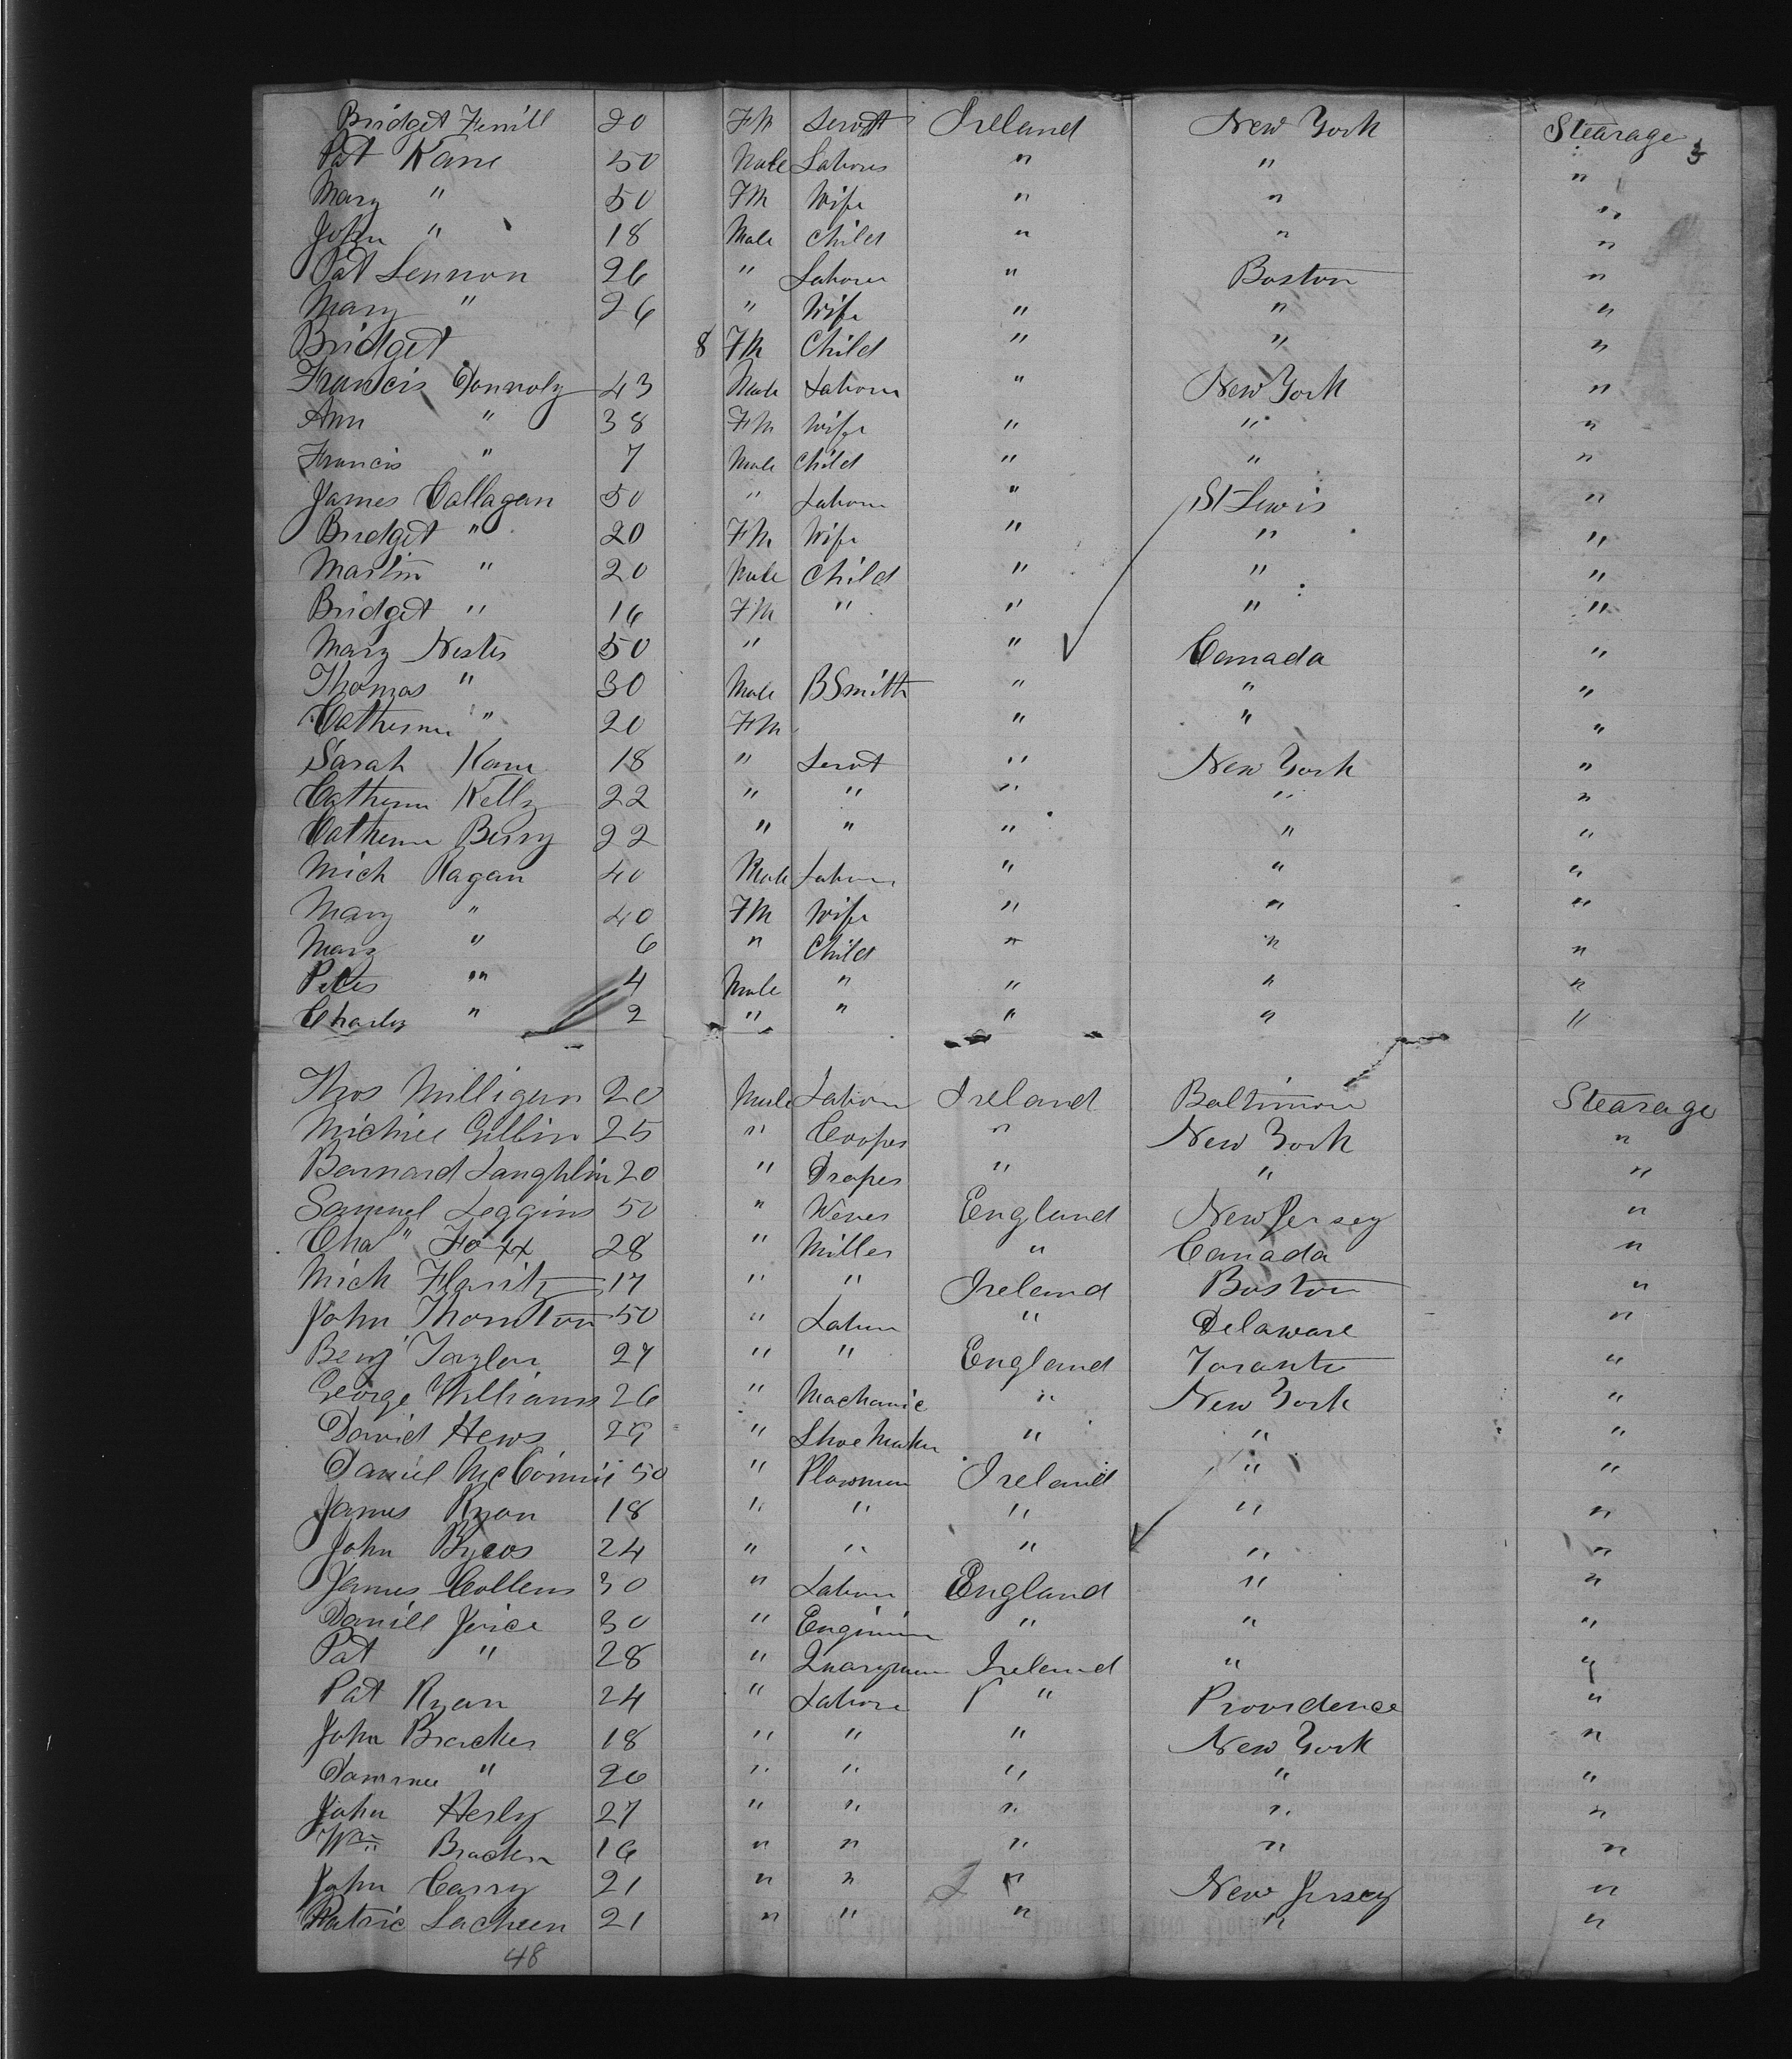 Bridget Ferrill 20 FM Servt Ireland New York Stearage
3
Pat Kane 50 Male Laborer " " "
Mary " 50 FM Wife " " "
John " 18 Male Child " " "
Pat Lennon 26 " Laborer " Boston "
Mary " 26 " Wife " " "
Bridget 8 FM Child " " "
Francis Connoly 43 Male Laborer " New York "
Ann " 38 FM Wife " " "
Francis " 7 Male Child " " "
James Callagan 50 " Laborer " St Lewis "
Bridget " 20 FM Wife " " "
Martin " 20 Male Child " " "
Bridget " 16 FM " " " "
Mary Nester 50 " " Canada "
Thomas " 30 Male BSmith " " "
Catherine " 20 FM " " "
Sarah Kane 18 " Servt " New York "
Catherine Kelly 22 " " " " "
Catherine Berry 22 " " " " "
Mich Ragan 40 Male Laborer " " "
Mary " 40 FM Wife " " "
Mary " 6 " Child " " "
Peter " 4 Male " " " "
Charly " 2 " " " " "
Thos Milligan 20 Male Laborer Ireland Baltimore Stearage
Michiel Gillin 25 " Cooper " New York "
Barnard Laughlin 20 " Draper " " "
Samuel Leggins 50 " Wever England New Jersey "
Cha" Foxx 28 " Miller " Canada "
Mich Flarity 17 " " Ireland Boston "
John Thornton 50 " Laborer " Delaware "
Benj Taylor 27 " " England Toranto "
George Williams 26 " Machanic " New York "
David Hews 29 " Shoe Maker " " "
Daniel 50 " Plowman Ireland " "
James Ryan 18 " " " " "
John 24 " " " " "
James Collens 30 " Laborer England " "
Daniel Joice 30 " " " "
Pat " 28 " Quaryman Ireland " "
Pat Ryan 24 " Laborer " Providence "
John Bracken 18 " " " New York "
" 20 " " " " "
John Herly 27 " " " " "
Wm Bracken 16 " " " " "
John Carry 21 " " " New Jersey "
Patric 21 " " " " "
48